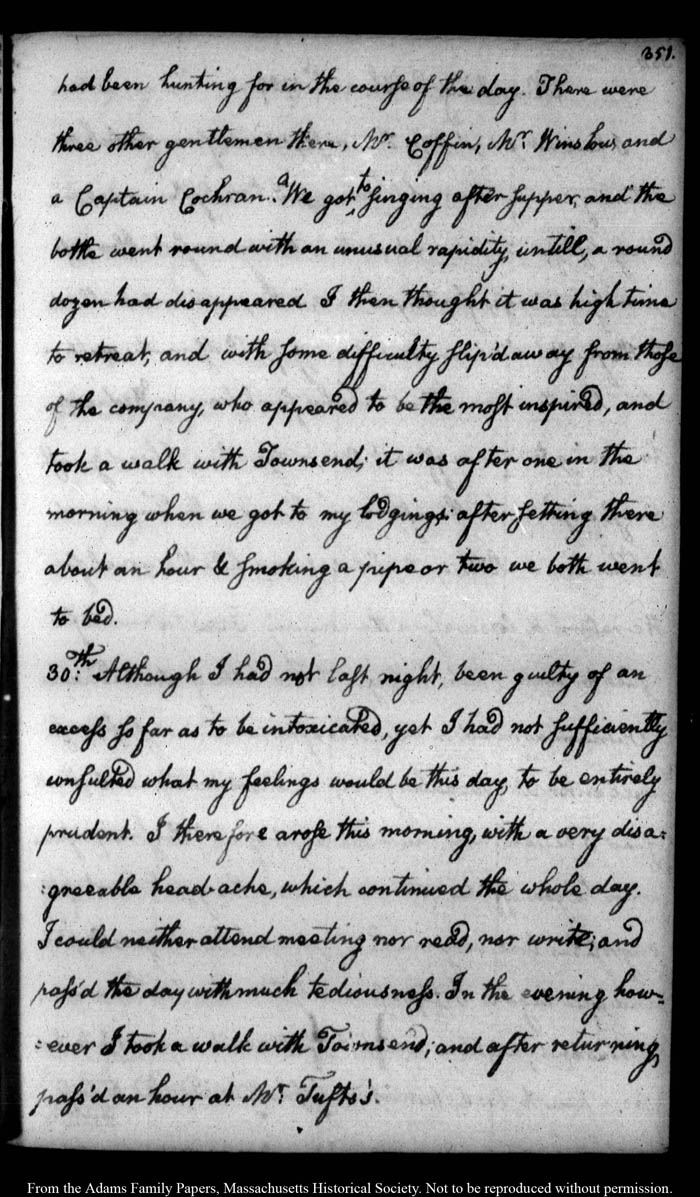 351.
had been hunting for in the course of the day. There were
three other gentlemen there, Mr. Coffin, Mr. Winslow, and
a Captain Cochran. a We got to singing after supper, and the
bottle went round with an unusual rapidity, untill, a round
dozen had disappeared. I then thought it was high time
to retreat, and with some difficulty slip'd away from those
of the company, who appeared to be the most inspired, and
took a walk with Townsend; it was after one in the
morning when we got to my lodgings: after setting there
about an hour & smoking a pipe or two we both went
to bed.
30th. Although I had not last night, been guilty of an
excess so far as to be intoxicated, yet I had not sufficiently
consulted what my feelings would be this day, to be entirely
prudent. I therefore arose this morning, with a very disa=
:greeable head-ache, which continued the whole day.
I could neither attend meeting nor read, nor write; and
pass'd the day with much tediousness. In the evening how=
=ever I took a walk with Townsend; and after returning,
pass'd an hour at Mr. Tufts's.
From the Adams Family Papers, Massachusetts Historical Society. Not to be reproduced without permission.